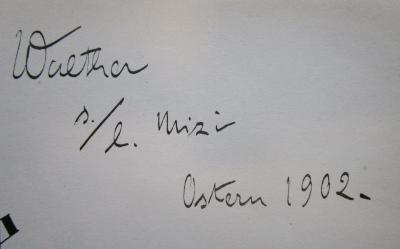 Walther
s./l. Mizi
Ostern 1902.